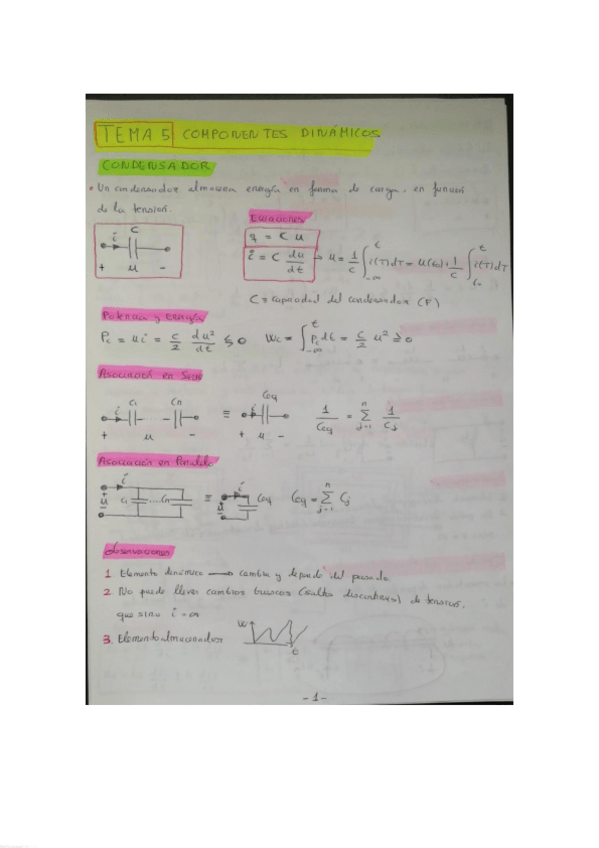 TEMA 5 COMPONENTES DINÁMICOS
CONDENSADOR
• Un condensador almacena energía en forma de carga, en función
de la tension.
Ecuaciones
C
i
+ u -
q = C u
i = C du/dt → u = 1/C ∫_{-∞}^{t} i(T)dT = u(t₀) + 1/C ∫_{t₀}^{t} i(T)dT
C ≡ capacidad del condensador (F)
Potencia y energía
Pc = u i = C/2 du²/dt ≶ 0 Wc = ∫_{-∞}^{t} Pc dt = C/2 u² ≥ 0
Asociación en Serie
i C₁ Cn ≡ i Ceq 1/Ceq = Σ_{j=1}^{n} 1/Cj
+ u - + u -
Asociación en Paralelo
i + u - C₁ ... Cn ≡ i u Ceq Ceq = Σ_{j=1}^{n} Cj
observaciones
1 Elemento dinámico → cambia y depende del pasado
2 No puede llevar cambios bruscos (salto discontinuo) de tension,
que sino i = ∞
3. Elemento almacenador W t
- 1 -